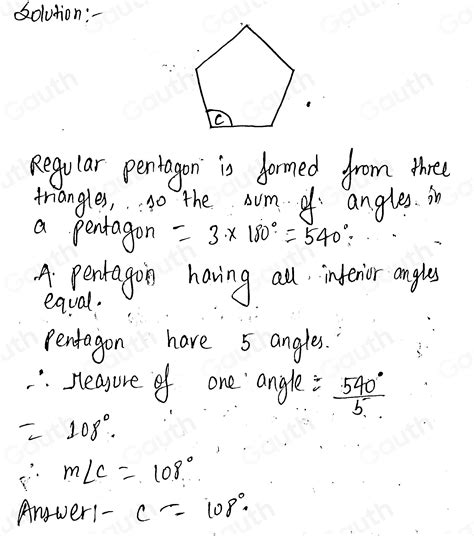 Solution:-
C
Regular pentagon is formed from three
triangles, so the sum of angles in
a pentagon = 3 x 180° = 540°.
A pentagon having all interior angles
equal.
Pentagon have 5 angles.
∴ Measure of one angle = 540°
5
= 108°.
∴ m∠C = 108°
Answer:- C = 108°.